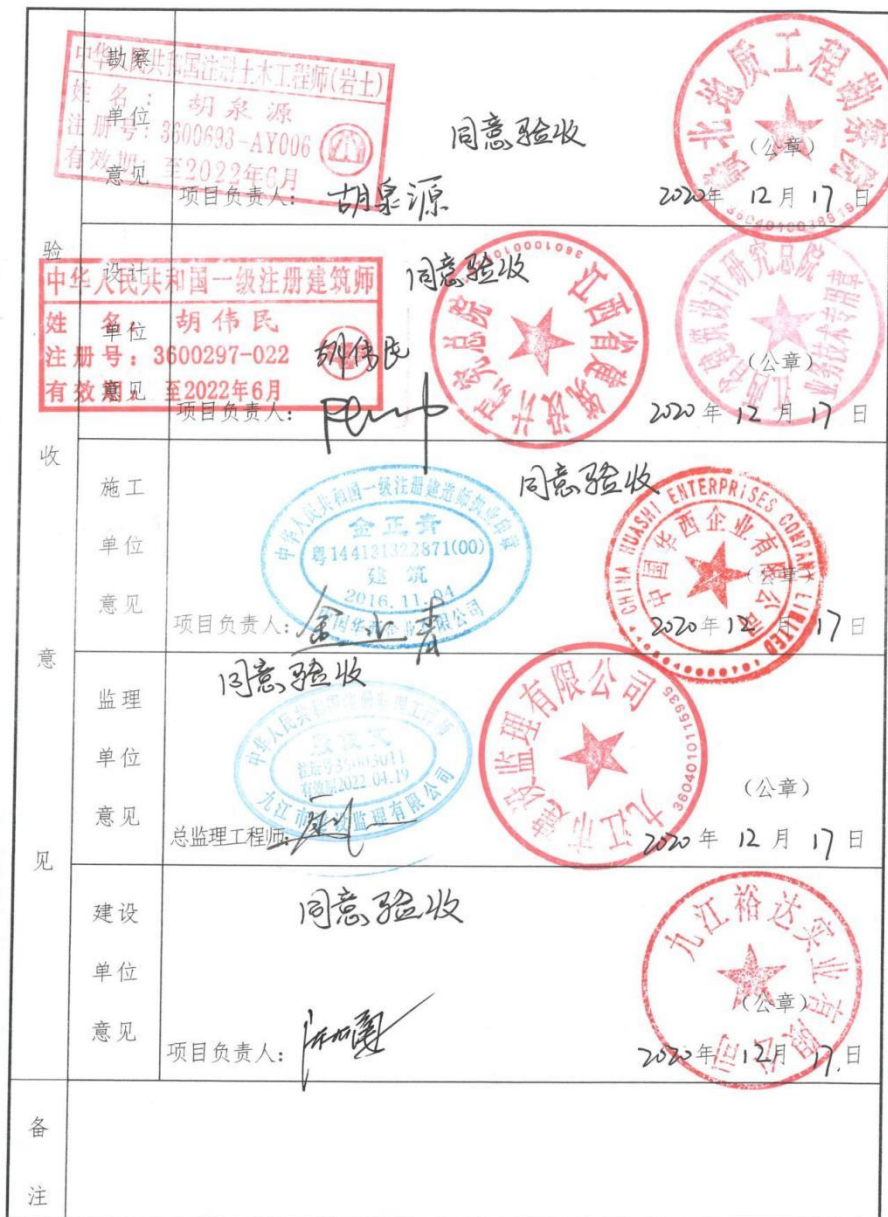 验收意见
勘察单位意见
中华人民共和国注册土木工程师(岩土)
姓名：胡泉源
注册号：3600693-AY006
有效期：至2022年6月
同意验收
赣北地质工程勘察院
(公章)
项目负责人：胡泉源
2020年12月17日
设计单位意见
中华人民共和国一级注册建筑师
姓名：胡伟民
注册号：3600297-022
有效期：至2022年6月
同意验收
胡伟民
江西省建筑设计研究总院
江西省建筑设计研究总院
业务技术专用章
(公章)
项目负责人：
2020年12月17日
施工单位意见
同意验收
中华人民共和国一级注册建造师执业印章
金正青
粤144131322871(00)
建筑
2016.11.04
中国华西企业有限公司
CHINA HUASHI ENTERPRISES COMPANY LIMITED
中国华西企业有限公司
(公章)
项目负责人：金正青
2020年12月17日
监理单位意见
同意验收
中华人民共和国注册监理工程师
注册号36003011
有效期2022.04.19
九江市建设监理有限公司
九江市建设监理有限公司
36040101115935
(公章)
总监理工程师：
2020年12月17日
建设单位意见
同意验收
九江裕达实业有限公司
(公章)
项目负责人：
2020年12月17日
备注